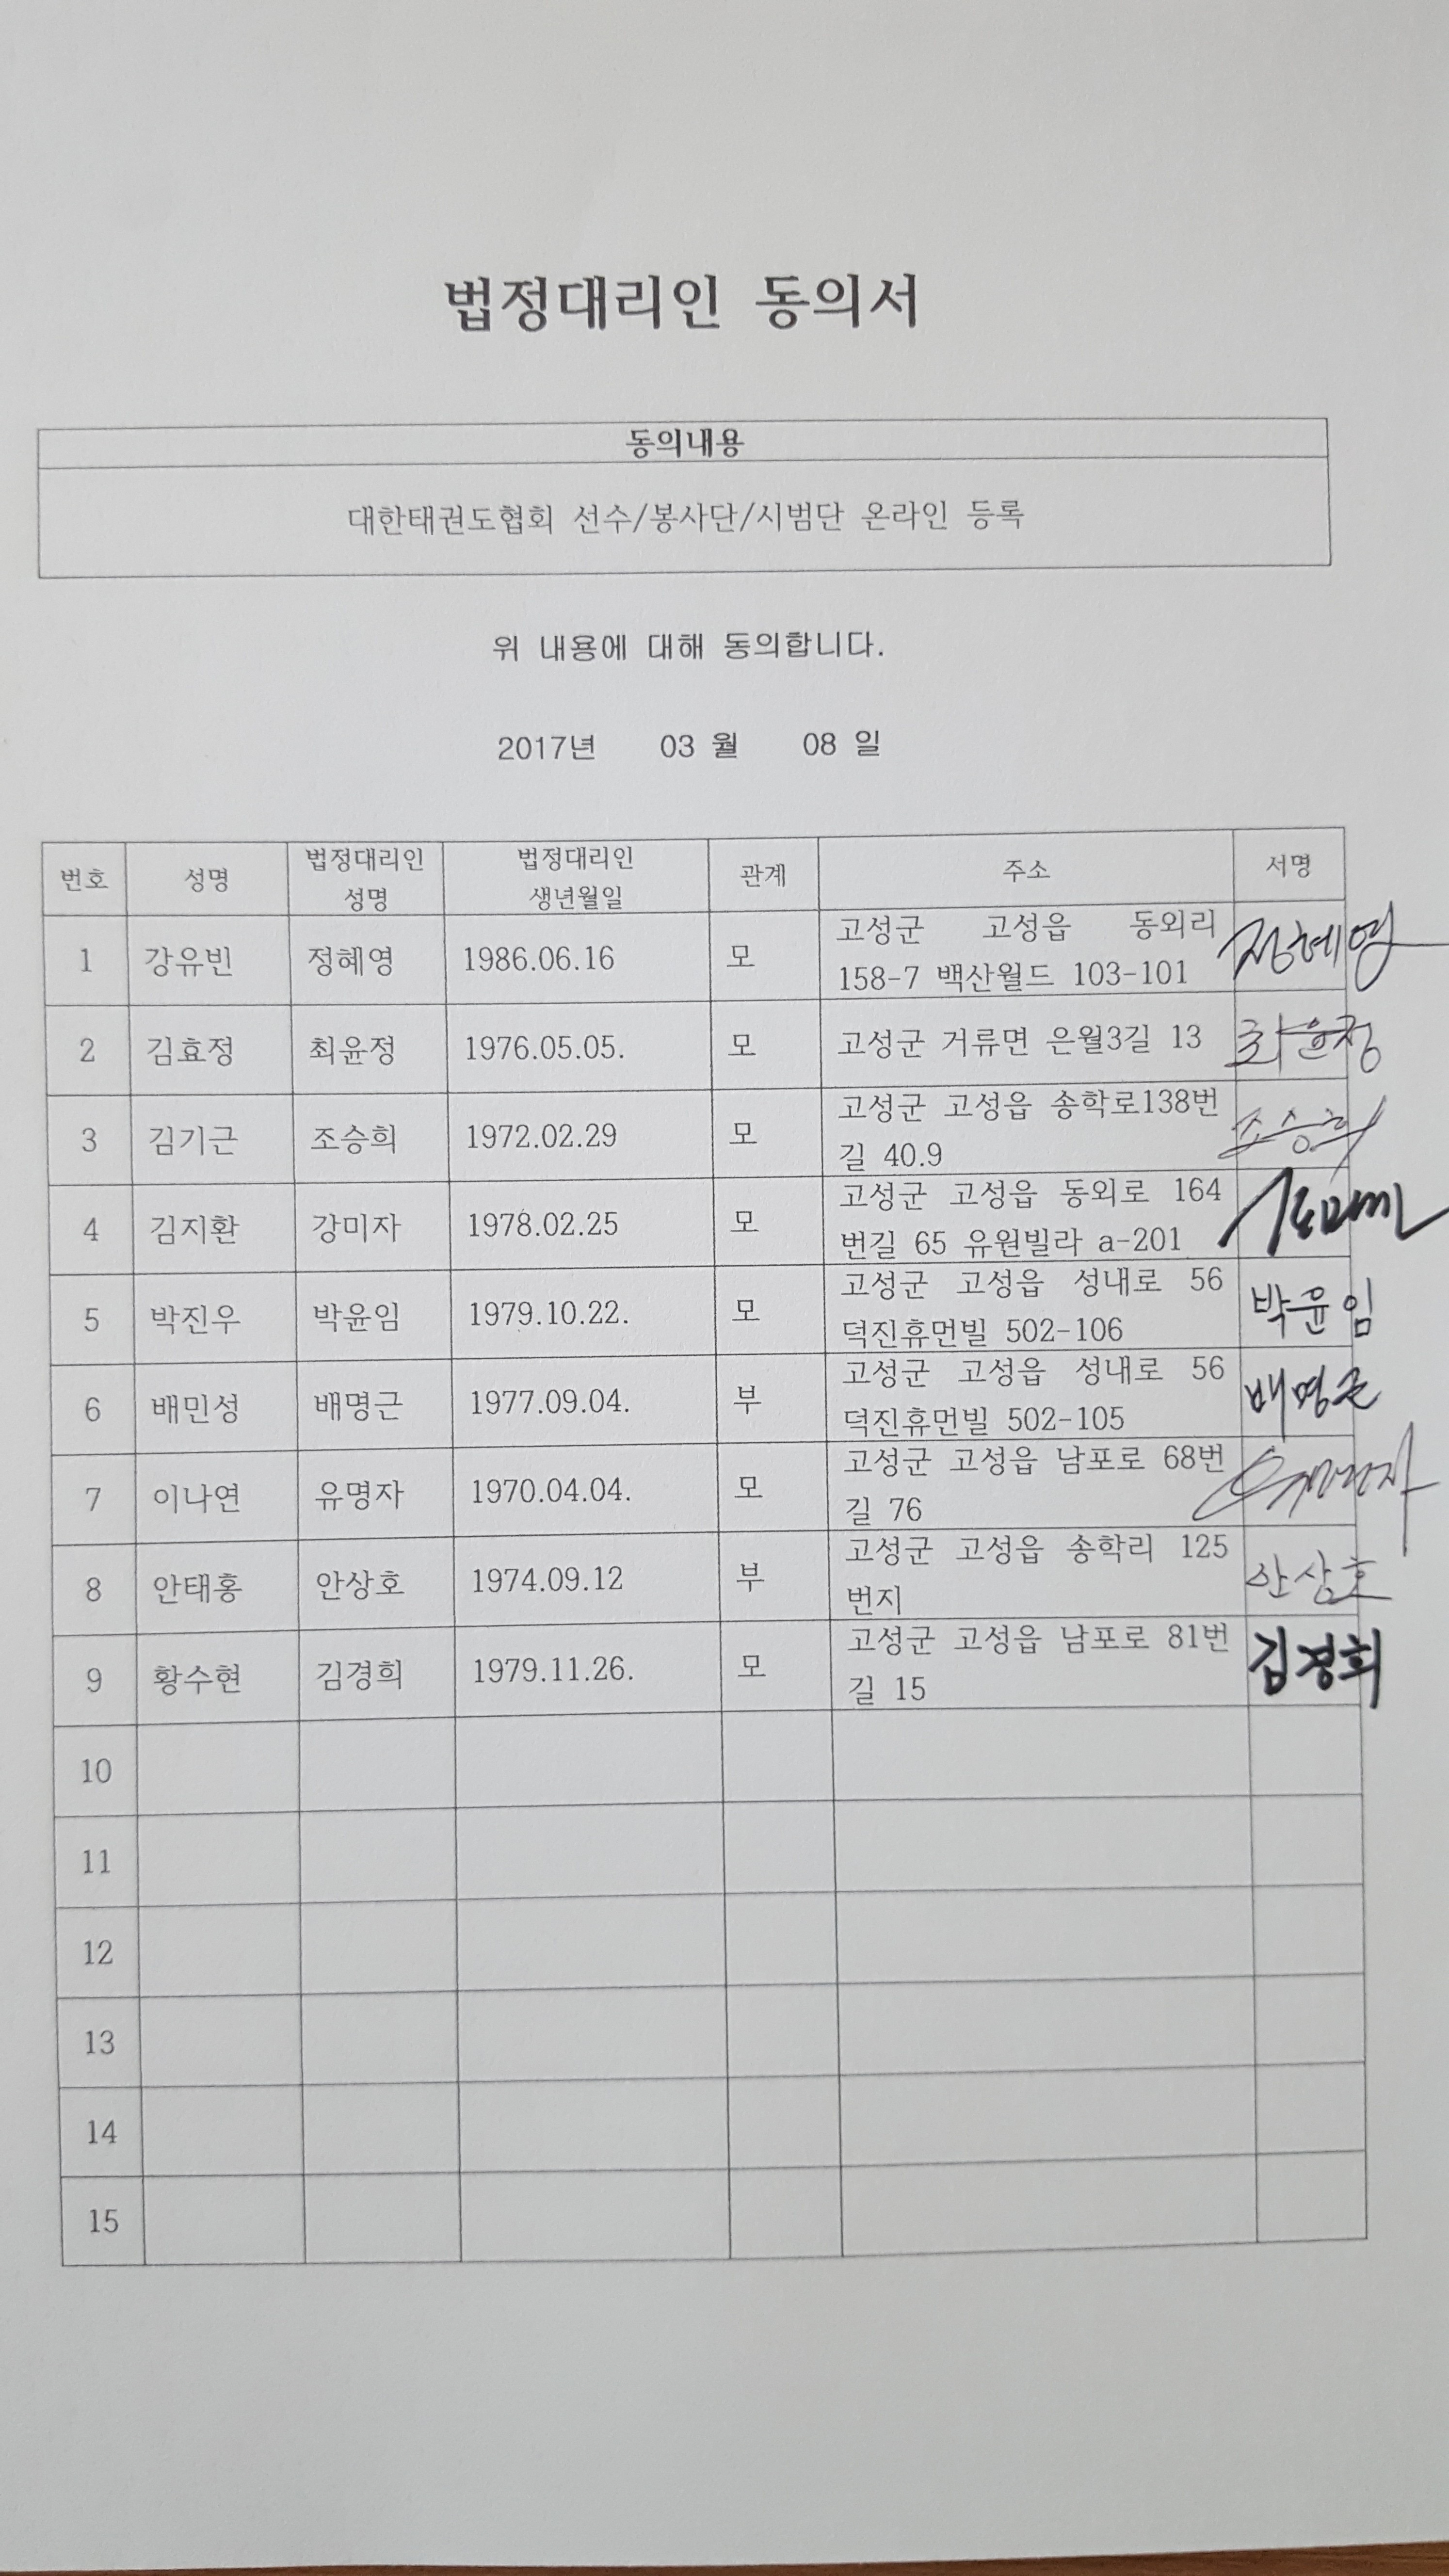 법정대리인 동의서
동의내용
대한태권도협회 선수/봉사단/시범단 온라인 등록
위 내용에 대해 동의합니다.
2017년 03 월 08 일
번호 성명 법정대리인 성명 법정대리인 생년월일 관계 주소 서명
1 강유빈 정혜영 1986.06.16 모 고성군 고성읍 동외리
158-7 백산월드 103-101 정혜영
2 김효정 최윤정 1976.05.05. 모 고성군 거류면 은월3길 13 최윤정
3 김기근 조승희 1972.02.29 모 고성군 고성읍 송학로138번
길 40.9 조승희
4 김지환 강미자 1978.02.25 모 고성군 고성읍 동외로 164
번길 65 유원빌라 a-201
5 박진우 박윤임 1979.10.22. 모 고성군 고성읍 성내로 56
덕진휴먼빌 502-106 박윤임
6 배민성 배명근 1977.09.04. 부 고성군 고성읍 성내로 56
덕진휴먼빌 502-105 배명근
7 이나연 유명자 1970.04.04. 모 고성군 고성읍 남포로 68번
길 76 유명자
8 안태홍 안상호 1974.09.12 부 고성군 고성읍 송학리 125
번지 안상호
9 황수현 김경희 1979.11.26. 모 고성군 고성읍 남포로 81번
길 15 김경희
10
11
12
13
14
15